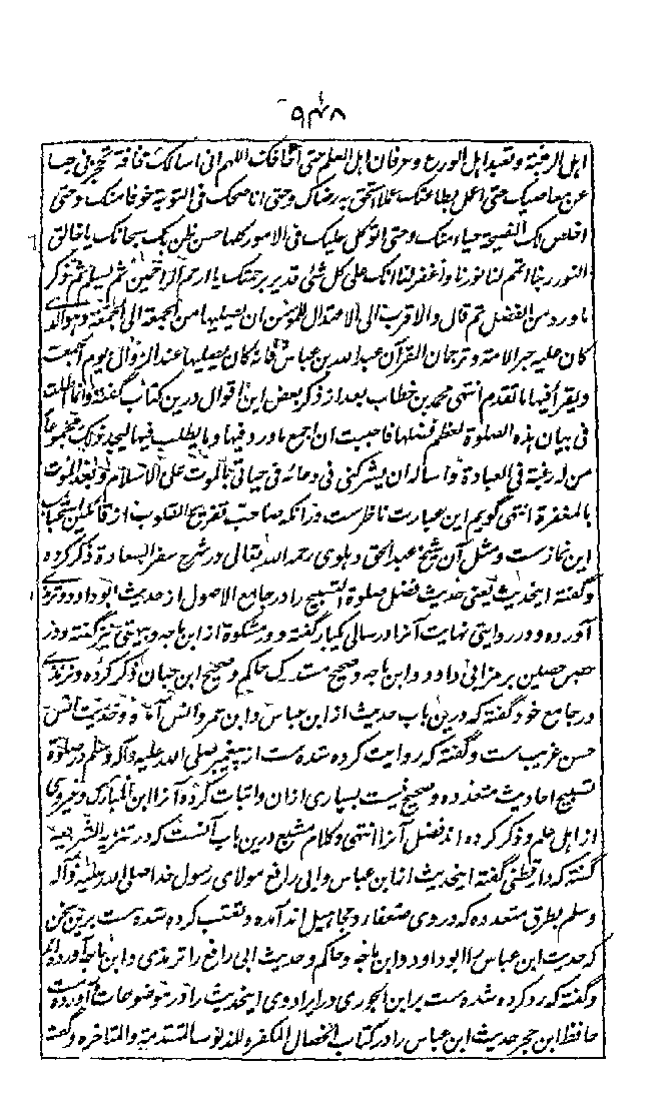 ۹۴۸
اہل الرغبۃ وتعبد اہل الورع وعرفان اہل العلم حتی اخافک اللہم انی اسالک مخافۃ تحجزنی بہا
عن معاصیک حتی اعمل بطاعتک عملا استحق بہ رضاک وحتی اناصحک فی التوبۃ خوفا منک وحتی
اخلص لک النصیحۃ حیاء منک وحتی اتوکل علیک فی الامور کلہا حسن ظن بک سبحانک یا خالق
النور ربنا اتمم لنا نورنا واغفر لنا انک علی کل شئی قدیر برحمتک یا ارحم الراحمین ثم یسلم ثم ذکر
ماورد من الفضل ثم قال والاقرب الی الاعتدال للمؤمن ان یصلیہا من الجمعۃ الی الجمعۃ وہوالذی
کان علیہ حبر الامۃ وترجمان القرآن عبداللہ بن عباس فانہ کان یصلیہا عند الزوال یوم الجمعۃ
ویقرأ فیہا ماتقدم انتہی محمد بن خطاب بعد از ذکر بعض این اقوال درین کتاب گفتہ وانما اطلت
فی بیان ہذہ الصلوۃ لعظم فضلہا فاحببت ان اجمع ماورد فیہا وما یطلب فیہا لیجد ذلک مجموعا
من لہ رغبۃ فی العبادۃ واسألہ ان یشرکنی فی دعائہ فی حیاتی بالموت علی الاسلام وبعد الموت
بالمغفرۃ انتہی گویم این عبارت ناظرست در انکہ صاحب تفریح القلوب از قائلین استحباب
این نمازست ومثل آن شیخ عبدالحق دہلوی رحمہ اللہ تعالی در شرح سفر السعادۃ ذکر کردہ
وگفتہ اینحدیث یعنی حدیث فضل صلوۃ التسبیح را در جامع الاصول از حدیث ابوداود وترمذی
آوردہ ودر روایتی نہایت آنرا در سالی یکبار گفتہ ودر مشکوۃ از ابن ماجہ وبیہقی نیز گفتہ ودر
حصن حصین برمز ابی داود وابن ماجہ وصحیح مستدرک حاکم وصحیح ابن حبان ذکر کردہ وترمذی
در جامع خود گفتہ کہ درین باب حدیث از ابن عباس وابن عمرو انس آمدہ وحدیث انس
حسن غریب ست وگفتہ کہ روایت کردہ شدہ ست از پیغمبر صلی اللہ علیہ وآلہ وسلم در صلوۃ
تسبیح احادیث متعددہ وصحیح نیست بسیاری ازان واثبات کردہ آنرا ابن المبارک وغیر وی
از اہل علم وذکر کردہ اند فضل آنرا انتہی وکلام مشبع درین باب آنست کہ در تنزیہ الشریعہ
گفتہ کہ دارقطنی گفتہ اینحدیث از ابن عباس وابی رافع مولای رسول خدا صلی اللہ علیہ وآلہ
وسلم بطرق متعددہ کہ در وی ضعفاء ومجاہیل اند آمدہ وتعقب کردہ شدہ ست برین سخن
کہ حدیث ابن عباس را ابوداود وابن ماجہ وحاکم وحدیث ابی رافع را ترمذی وابن ماجہ آوردہ اند
وگفتہ کہ رد کردہ شدہ ست بر ابن الجوزی در ایراد وی اینحدیث را در موضوعات وآوردہ ست
حافظ ابن حجر حدیث ابن عباس را در کتاب الخصال المکفرہ للذنوب المتقدمۃ والمتاخرہ وگفتہ